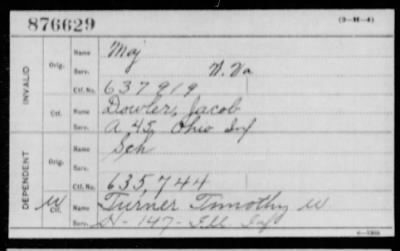 876629 (3-H-4)
INVALID
Orig.
Name Maj
Serv. W. Va
Ctf. No. 637919
Ctf.
Name Dowler, Jacob
Serv. A 45, Ohio Inf
DEPENDENT
Orig.
Name Sch
Serv.
Ctf. No. 635,744
W Ctf.
Name Turner Timothy W
Serv. H-147-Ill Inf